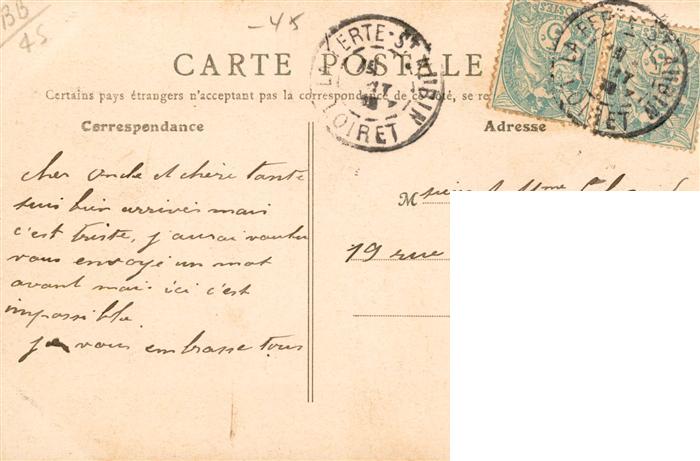 BB
45
-45
CARTE POSTALE
Certains pays étrangers n'acceptant pas la correspondance de ce côté, se re
Correspondance
Adresse
LA FERTE-ST-AUBIN
LOIRET
LA FERTE-ST-AUBIN
LOIRET
POSTES
cher oncle et chère tante
suis bien arrivés mais
c'est triste, j'aurai voulu
vous envoyé un mot
avant mais ici c'est
impossible.
je vous embrasse tous
M
19 rue